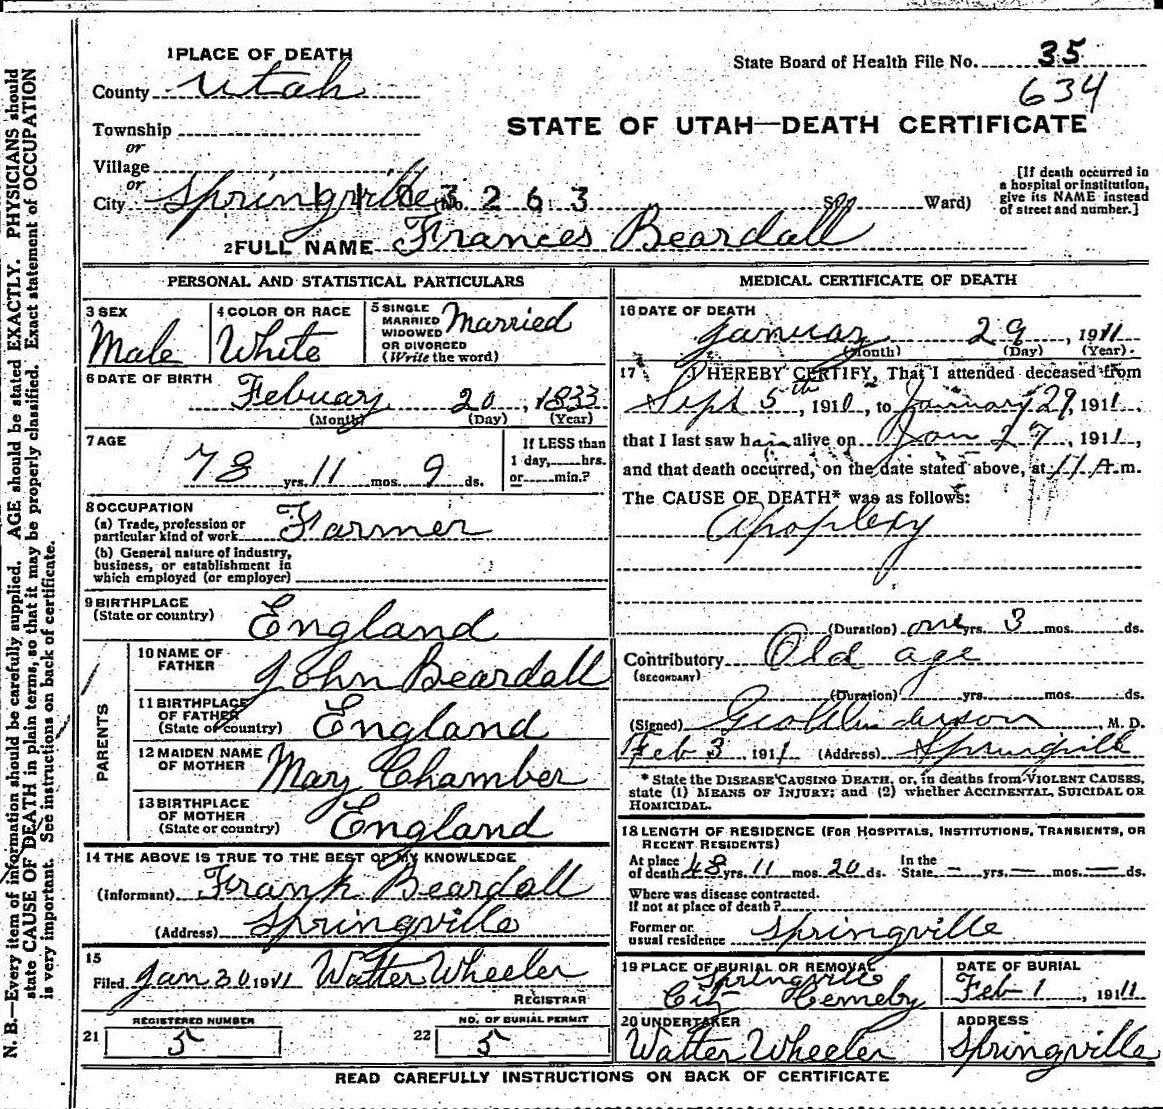 1 PLACE OF DEATH
County Utah
Township
or
Village
or
City Springville
3 2 6 3
Ward)
State Board of Health File No. 35
634
STATE OF UTAH—DEATH CERTIFICATE
[If death occurred in
a hospital or institution,
give its NAME instead
of street and number.]
2 FULL NAME Frances Beardall
PERSONAL AND STATISTICAL PARTICULARS
3 SEX
Male
4 COLOR OR RACE
White
5 SINGLE
MARRIED
WIDOWED
OR DIVORCED
(Write the word)
Married
6 DATE OF BIRTH
Febuary 20, 1833
(Month) (Day) (Year)
7 AGE
78 yrs. 11 mos. 9 ds.
If LESS than
1 day, hrs.
or min.?
8 OCCUPATION
(a) Trade, profession or
particular kind of work Farmer
(b) General nature of industry,
business, or establishment in
which employed (or employer)
9 BIRTHPLACE
(State or country) England
PARENTS
10 NAME OF
FATHER John Beardall
11 BIRTHPLACE
OF FATHER
(State or country) England
12 MAIDEN NAME
OF MOTHER Mary Chamber
13 BIRTHPLACE
OF MOTHER
(State or country) England
14 THE ABOVE IS TRUE TO THE BEST OF MY KNOWLEDGE
(informant) Frank Beardall
(Address) Springville
15
Filed Jan 30 1911 Walter Wheeler
REGISTRAR
21 REGISTERED NUMBER
5
22 NO. OF BURIAL PERMIT
5
MEDICAL CERTIFICATE OF DEATH
16 DATE OF DEATH
January 29, 1911
(Month) (Day) (Year)
17 I HEREBY CERTIFY, That I attended deceased from
Sept 5th, 1910, to January 29, 1911,
that I last saw him alive on Jan 27, 1911,
and that death occurred, on the date stated above, at 11 A.m.
The CAUSE OF DEATH* was as follows:
Apoplexy
(Duration) one yrs. 3 mos. ds.
Contributory Old age
(SECONDARY)
(Duration) yrs. mos. ds.
(Signed) Geo , M. D.
Feb 3 1911 (Address) Springville
* State the DISEASE CAUSING DEATH, or, in deaths from VIOLENT CAUSES,
state (1) MEANS OF INJURY; and (2) whether ACCIDENTAL, SUICIDAL OR
HOMICIDAL.
18 LENGTH OF RESIDENCE (FOR HOSPITALS, INSTITUTIONS, TRANSIENTS, OR
RECENT RESIDENTS)
At place
of death 48 yrs. 11 mos. 20 ds. In the
State — yrs. — mos. — ds.
Where was disease contracted.
If not at place of death?
Former or
usual residence Springville
19 PLACE OF BURIAL OR REMOVAL
Springville
City Cemeby
DATE OF BURIAL
Feb 1, 1911
20 UNDERTAKER
Walter Wheeler
ADDRESS
Springville
READ CAREFULLY INSTRUCTIONS ON BACK OF CERTIFICATE
N. B.—Every item of information should be carefully supplied. AGE should be stated EXACTLY. PHYSICIANS should
state CAUSE OF DEATH in plain terms, so that it may be properly classified. Exact statement of OCCUPATION
is very important. See instructions on back of certificate.